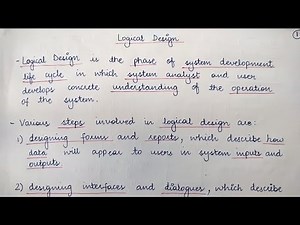 Logical Design
- Logical Design is the phase of system development
life cycle in which system analyst and user
develops concrete understanding of the operation
of the system.
- Various steps involved in logical design are:
1) designing forms and reports, which describe how
data will appear to users in system inputs and
outputs
2) designing interfaces and dialogues, which describe